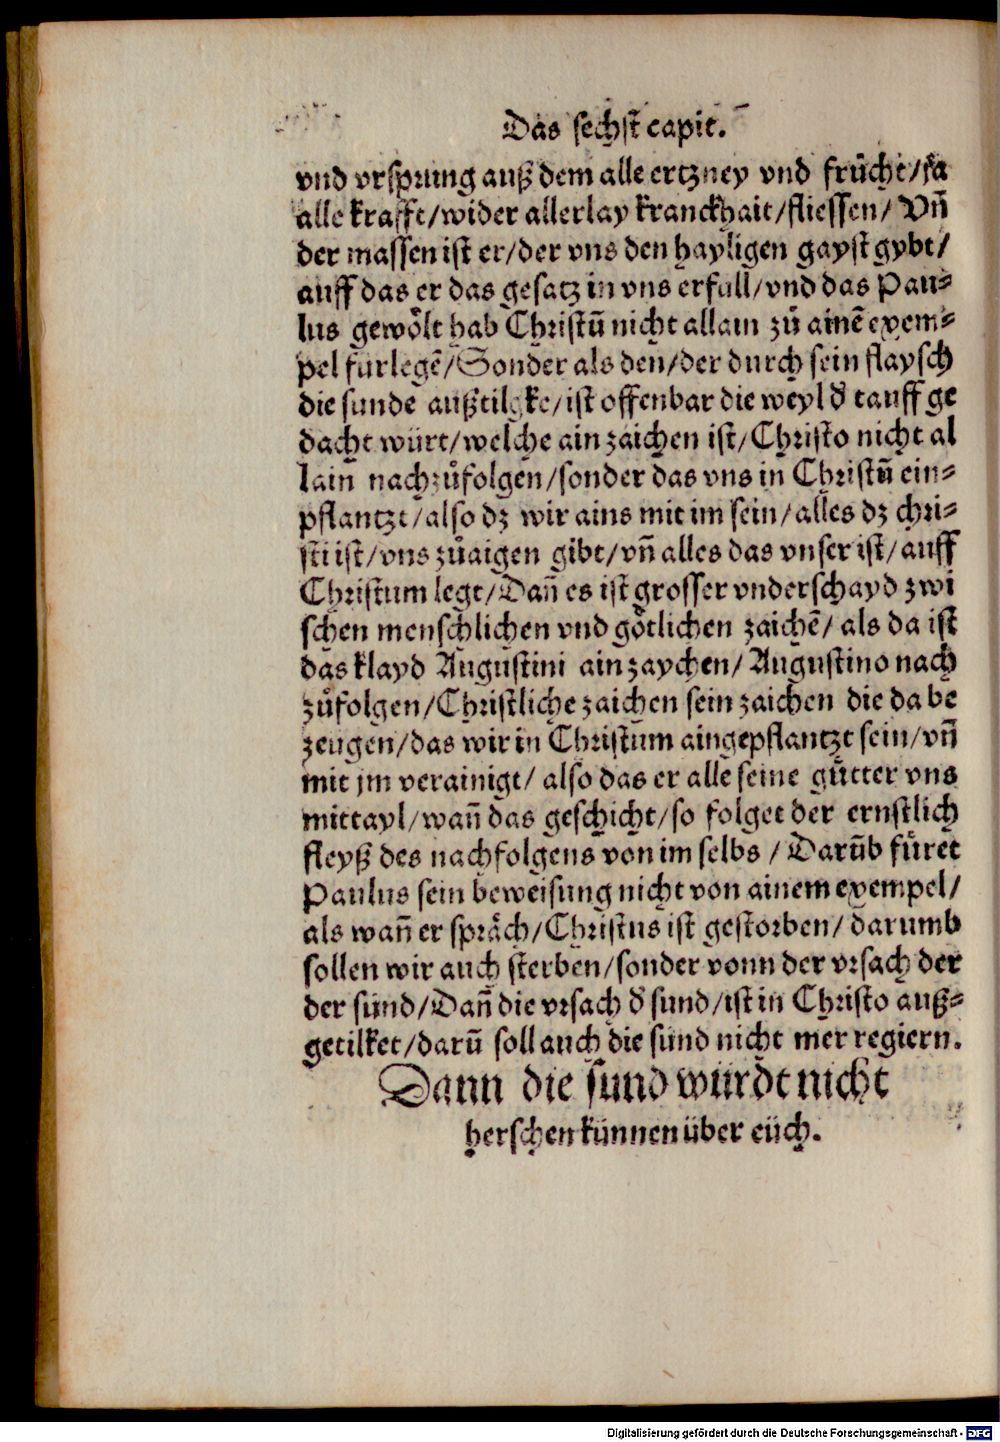 Das sechst̃ capit.
vnd vrsprung auß dem alle ertzney vnd frücht/ ja
alle krafft/ wider allerlay kranckhait/ fliessen/ Vñ
der massen ist er/ der vns den hayligen gayst gybt/
auff das er das gesatz in vns erfull/ vnd das Pau-
lus gewoͤlt hab Christũ nicht allain zuͦ ainẽ exem-
pel furlegẽ/ Sonder als den/ der durch sein flaysch
die sunde außtilgke/ ist offenbar die weyl d' tauff ge
dacht würt/ welche ain zaichen ist/ Christo nicht al
lain nachzuͦfolgen/ sonder das vns in Christũ ein-
pflantzt/ also dz wir ains mit im sein/ alles dz chri-
sti ist/ vns zuͦaigen gibt/ vñ alles das vnser ist/ auff
Christum legt/ Dañ es ist grosser vnderschayd zwi
schen menschlichen vnd goͤtlichen zaichẽ/ als da ist
das klayd Augustini ain zaychen/ Augustino nach
zuͦfolgen/ Christliche zaichen sein zaichen die da be
zeugen/ das wir in Christum aingepflantzt sein/ vñ
mit jm verainigt/ also das er alle seine guͤtter vns
mittayl/ wañ das geschicht/ so folget der ernstlich
fleyß des nachfolgens von im selbs / Darũb fuͤret
Paulus sein beweisung nicht von ainem exempel/
als wañ er spraͤch/ Christus ist gestorben/ darumb
sollen wir auch sterben/ sonder vonn der vrsach der
der sünd/ Dañ die vrsach d' sund/ ist in Christo auß-
getilket/ darũ soll auch die sünd nicht mer regiern.
Dann die sund würdt nicht
herschen künnen über eüch.
Digitalisierung gefördert durch die Deutsche Forschungsgemeinschaft - DFG